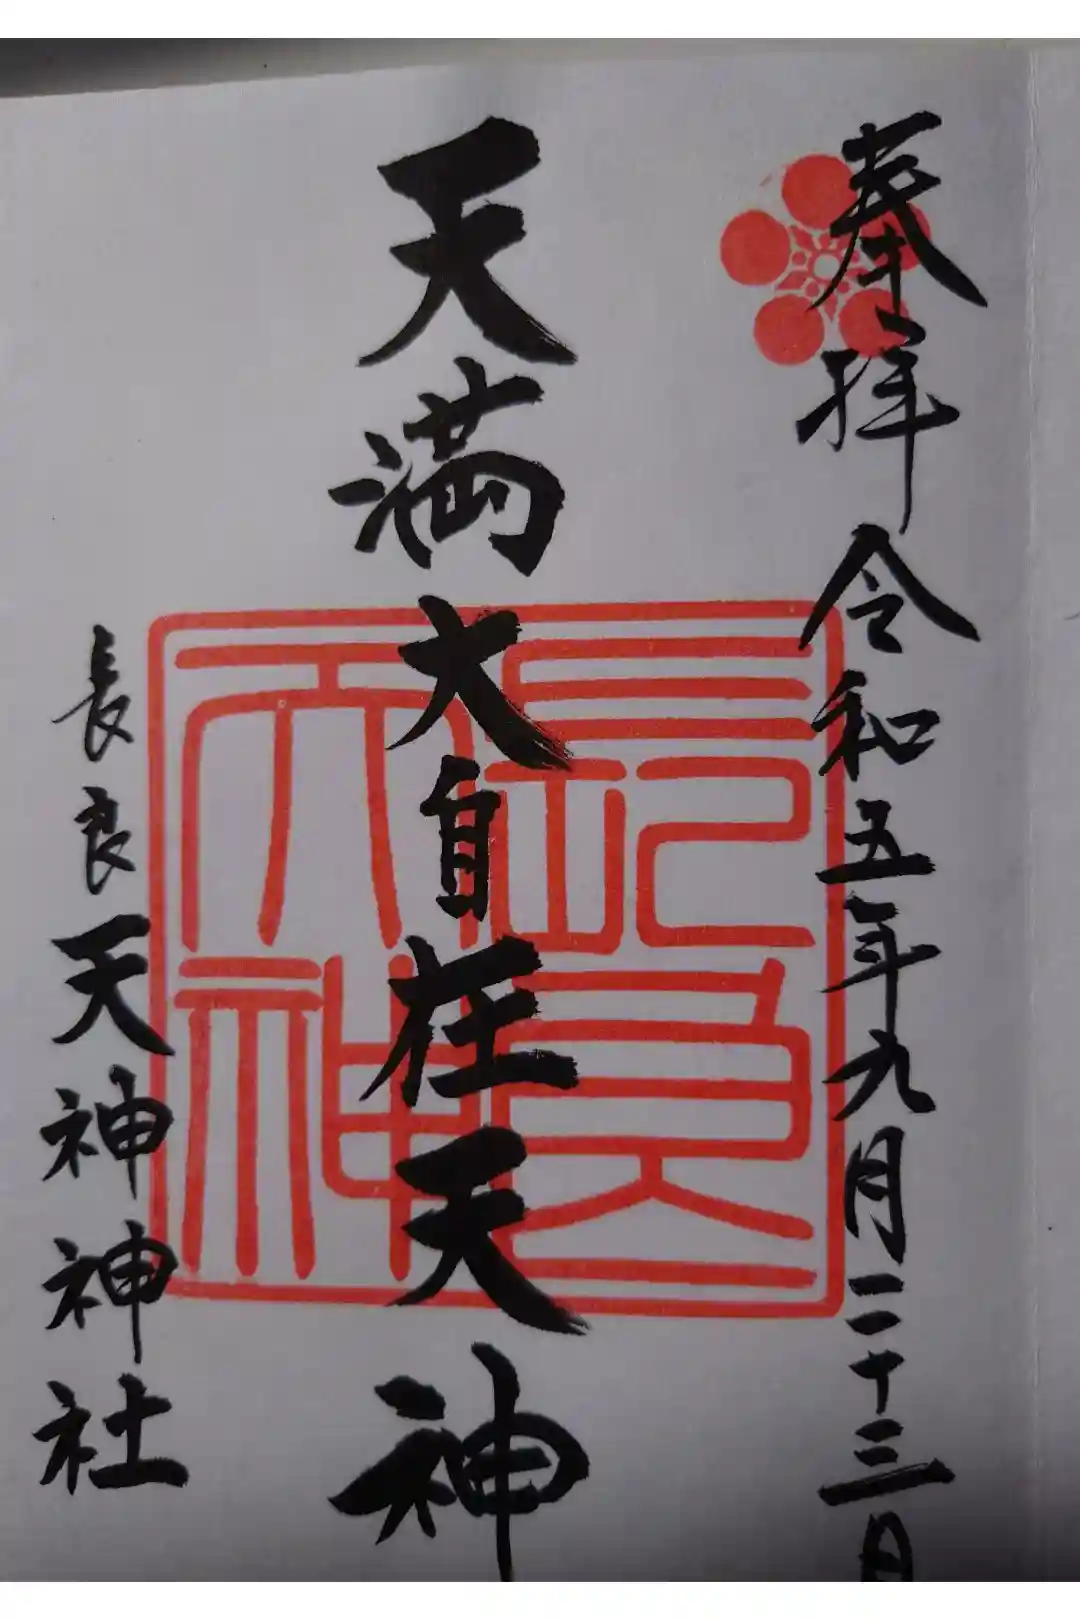 奉拝 令和五年九月二十三日
天満大自在天神
長良天神
長良天神神社